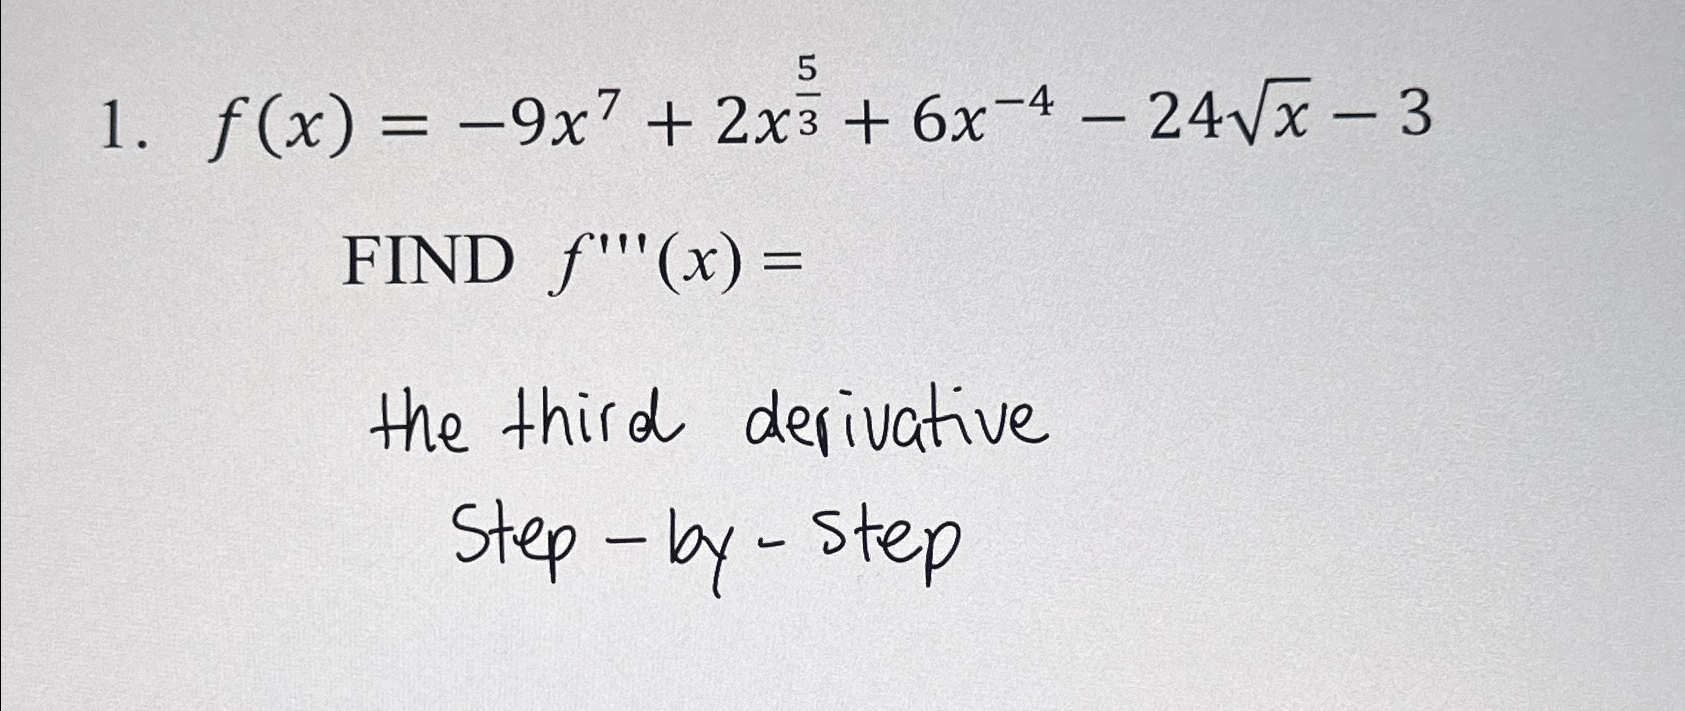 1. f(x) = −9x⁷ + 2x^(5/3) + 6x⁻⁴ − 24√x − 3
FIND f'''(x) =
the third derivative
Step-by-step